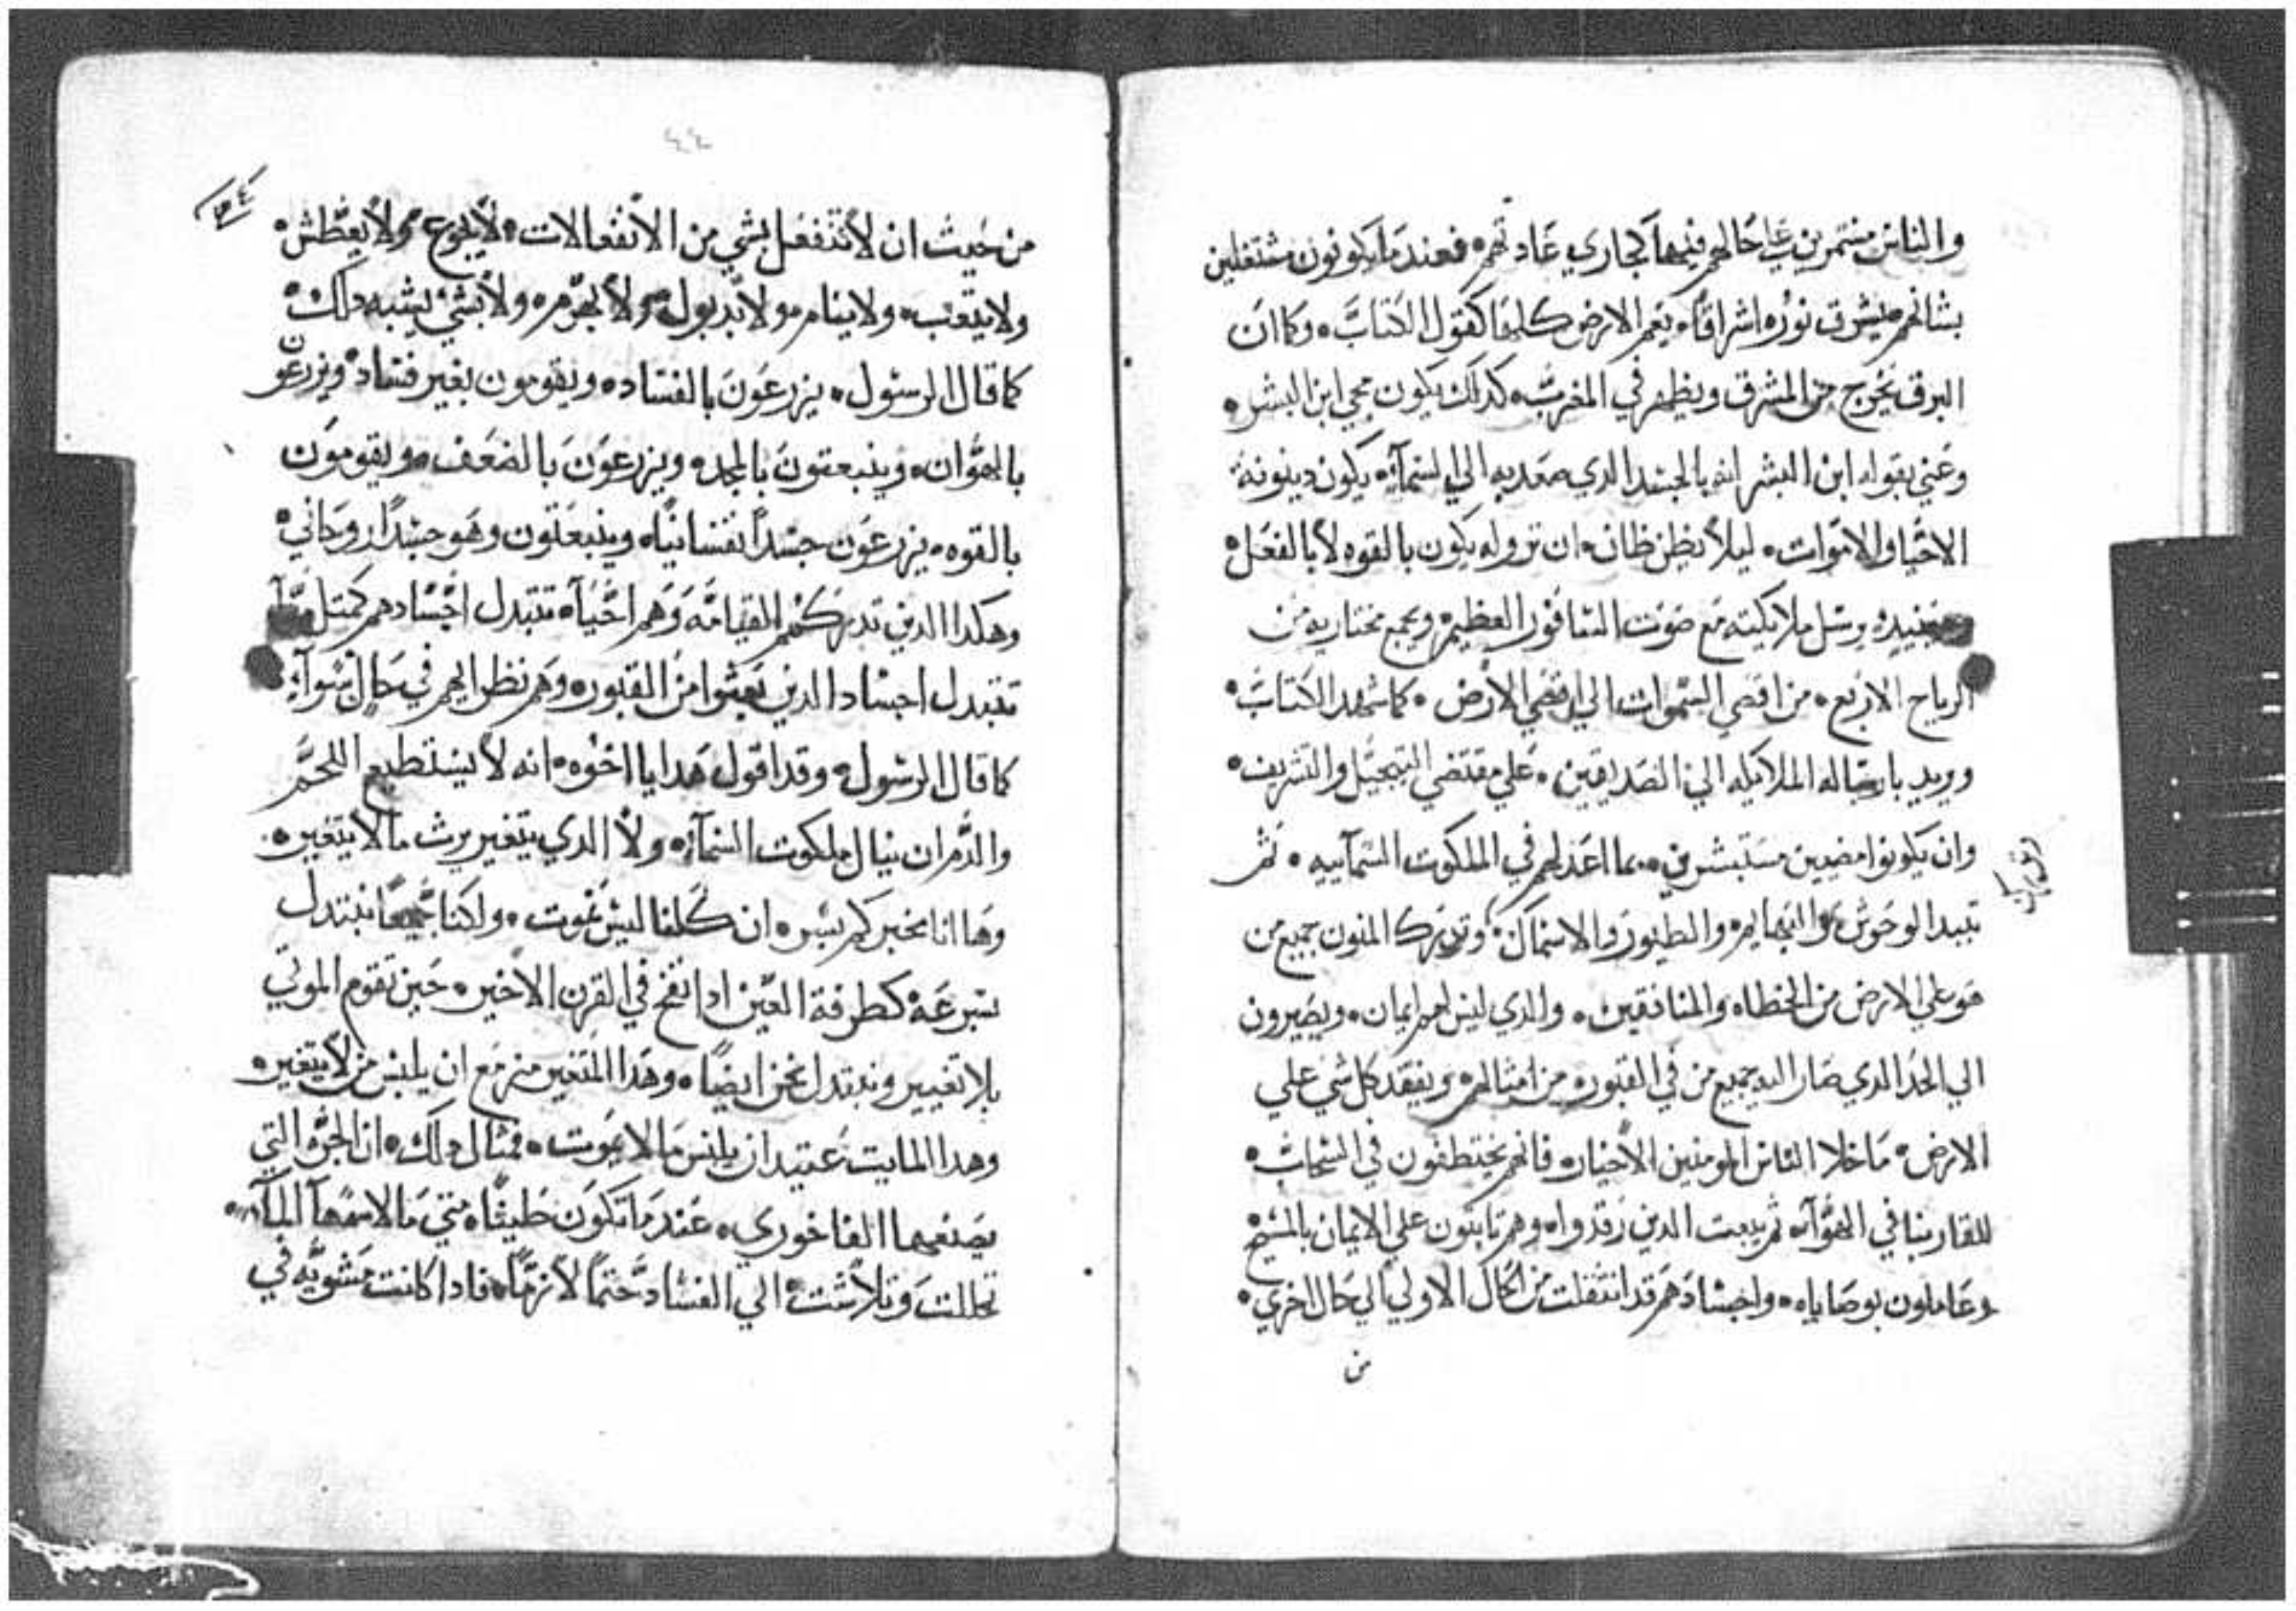 والناس مستمرين علي حالهم فيها كجاري عادتهم. فعند ما يكونون مشتغلين
بشانهم يشرق نوره اشراقًا. يعم الارض كلها كقول الكتاب. وكما ان
البرق يخرج من المشرق ويظهر في المغرب. كدلك يكون مجي ابن البشر.
وعني بقوله ابن البشر انه بالجسد الدي صعد به الي السمآء. يكون دينونة
الاحيا والاموات. ليلا يظن ظان. ان نزوله يكون بالقوه لا بالفعل.
يرسل ملايكته مع صوت السافور العظيم. ويجمع مختاريه من
الرياح الاربع. من اقصي السموات الي اقصي الارض. كما شهد الكتاب.
ويريد بارساله الملايكه الي الصديقين. علي مقتضي التبجيل والتشريف.
وان يكونوا مضيين مستبشرين. بما اعد لهم في الملكوت السمآييه. ثم
تبيد الوحوش والبهايم. والطيور والاسماك. وتدرك المنون جميع من
هو علي الارض من الخطاه والمنافقين. والدي ليس لهم ايمان. ويصيرون
الي الحد الدي صار اليه جميع من في القبور. من امثالهم. ويفقد كل شي علي
الارض. ما خلا الناس المومنين الاخيار. فانهم يختطفون في السحاب.
للقا ربنا في الهوآء. ثم يبعت الدين رقدوا. وهم تابتون علي الايمان بالمسيح
وعاملون بوصاياه. واجسادهم قد انتقلت من الحال الاولي الي حال اخري.
من
٤٤
من حيث ان لا تنفعل بشي من الانفعالات. لا يجوع ولا يعطش.
ولا يتعب. ولا ينام. ولا يبول. ولا يهرم. ولا بشي يشبه دلك.
كما قال الرسول. يزرعون بالفساد. ويقومون بغير فساد. ويزرعون
بالهوان. وينبعتون بالمجد. ويزرعون بالضعف. ويقومون
بالقوه. يزرعون جسدًا نفسانيًا. وينبعتون وهو جسدًا روحاني.
وهكدا الدين تدركهم القيامه وهم احيآء. تتبدل اجسادهم كمتل
تتبدل اجساد الدين بعثوا من القبور. وهم نظرايهم في حال سوآء.
كما قال الرسول. وقد اقول هدا يا اخوه. انه لا يستطيع اللحم
والدم ان ينال ملكوت السمآء. ولا الدي يتغير يرث ما لا يتغير.
وها انا مخبركم بسر. ان كلنا ليس نموت. ولكنا جميعًا نبتدل
بسرعه كطرفة العين ادا نفخ في القرن الاخير. حين تقوم الموتي
بلا تغيير ونبتدل نحن ايضًا. وهدا المتغير مزمع ان يلبس من لا يتغير.
وهدا المايت عتيد ان يلبس ما لا يموت. فمثال دلك. ان الجره التي
يصنعها الفاخوري. عند ما تكون طينًا. متي ما لامسها المآء.
تحللت وتلاشت الي الفساد حتمًا لازمًا. فادا كانت مشويه في